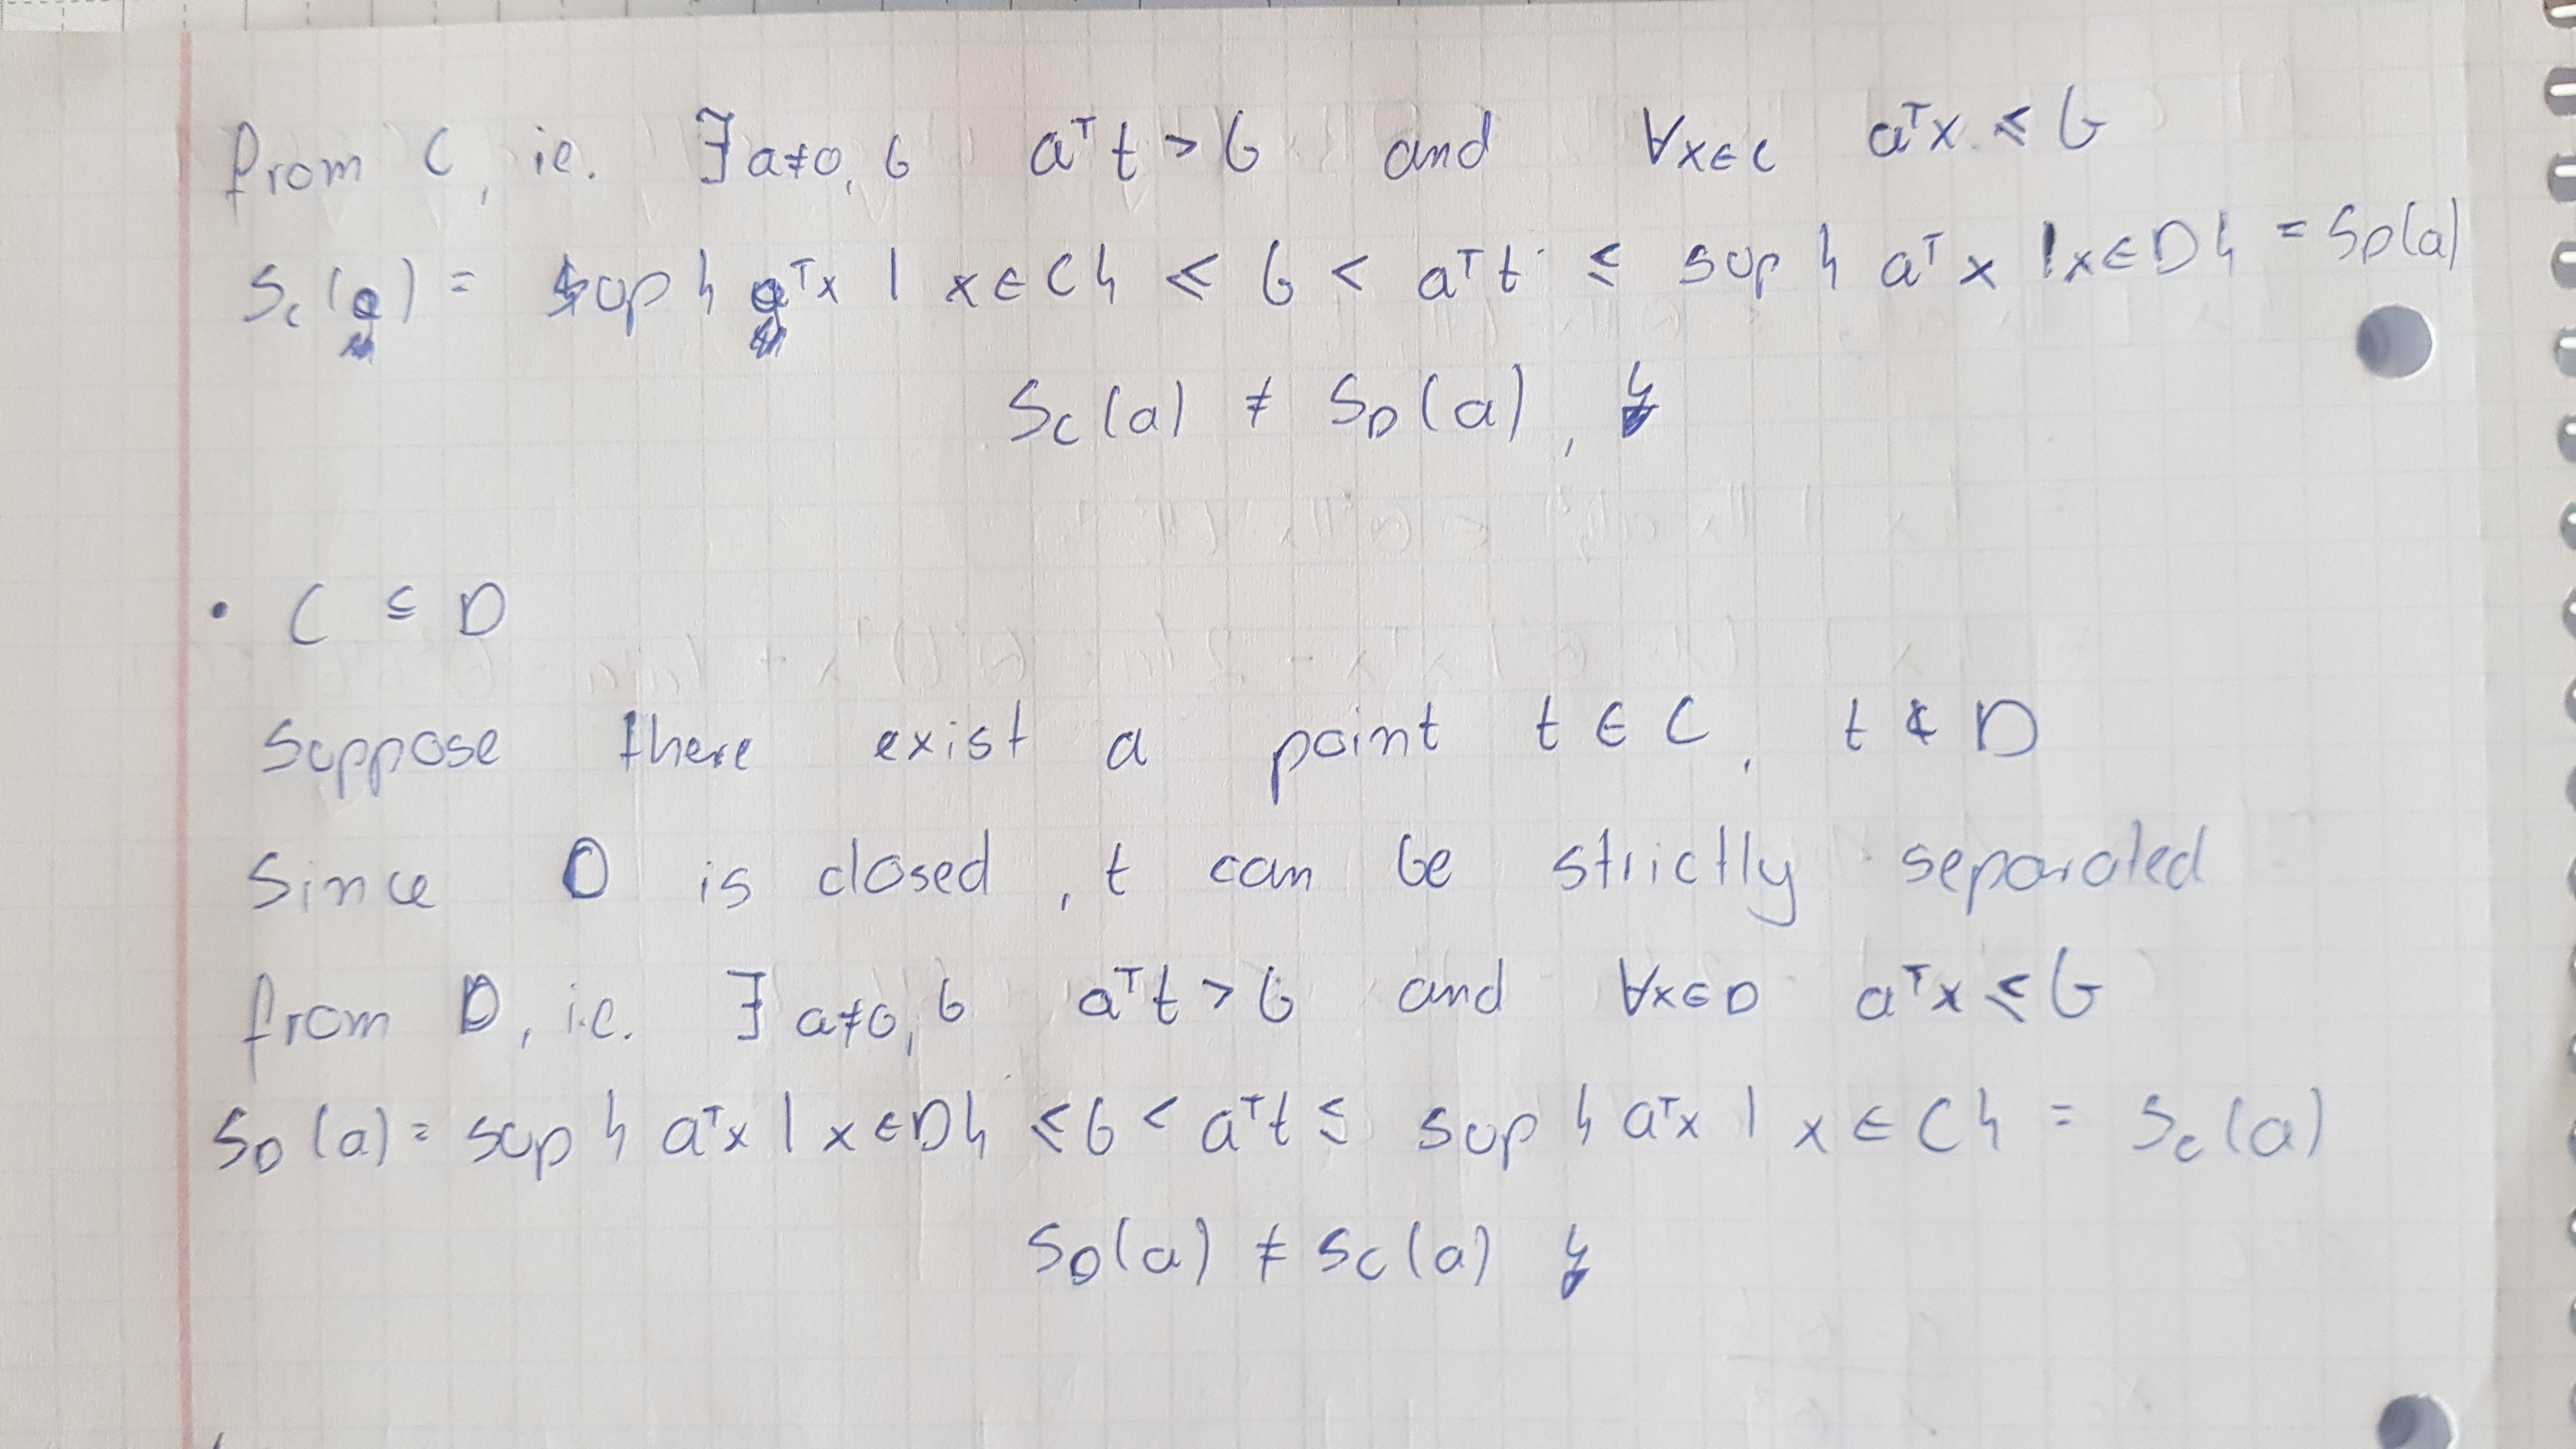 from C, ie. ∃ a≠0, b aᵀt > b and ∀x∈C aᵀx ≤ b
S_C(a) = sup { aᵀx | x∈C } ≤ b < aᵀt ≤ sup { aᵀx | x∈D } = S_D(a)
S_C(a) ≠ S_D(a), ↯
• C ⊆ D
Suppose there exist a point t ∈ C, t ∉ D
Since D is closed, t can be strictly separated
from D, i.e. ∃ a≠0, b aᵀt > b and ∀x∈D aᵀx ≤ b
S_D(a) = sup { aᵀx | x∈D } ≤ b < aᵀt ≤ sup { aᵀx | x∈C } = S_C(a)
S_D(a) ≠ S_C(a) ↯